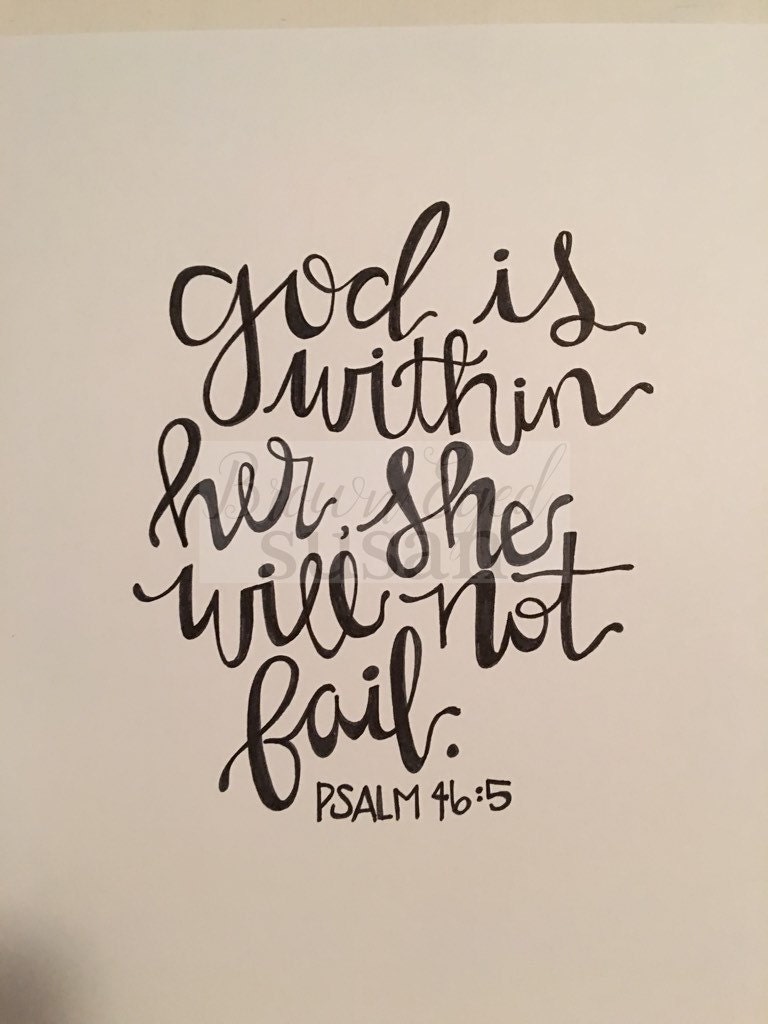 god is
within
her, she
will not
fail.
PSALM 46:5
Brown Eyed
susan